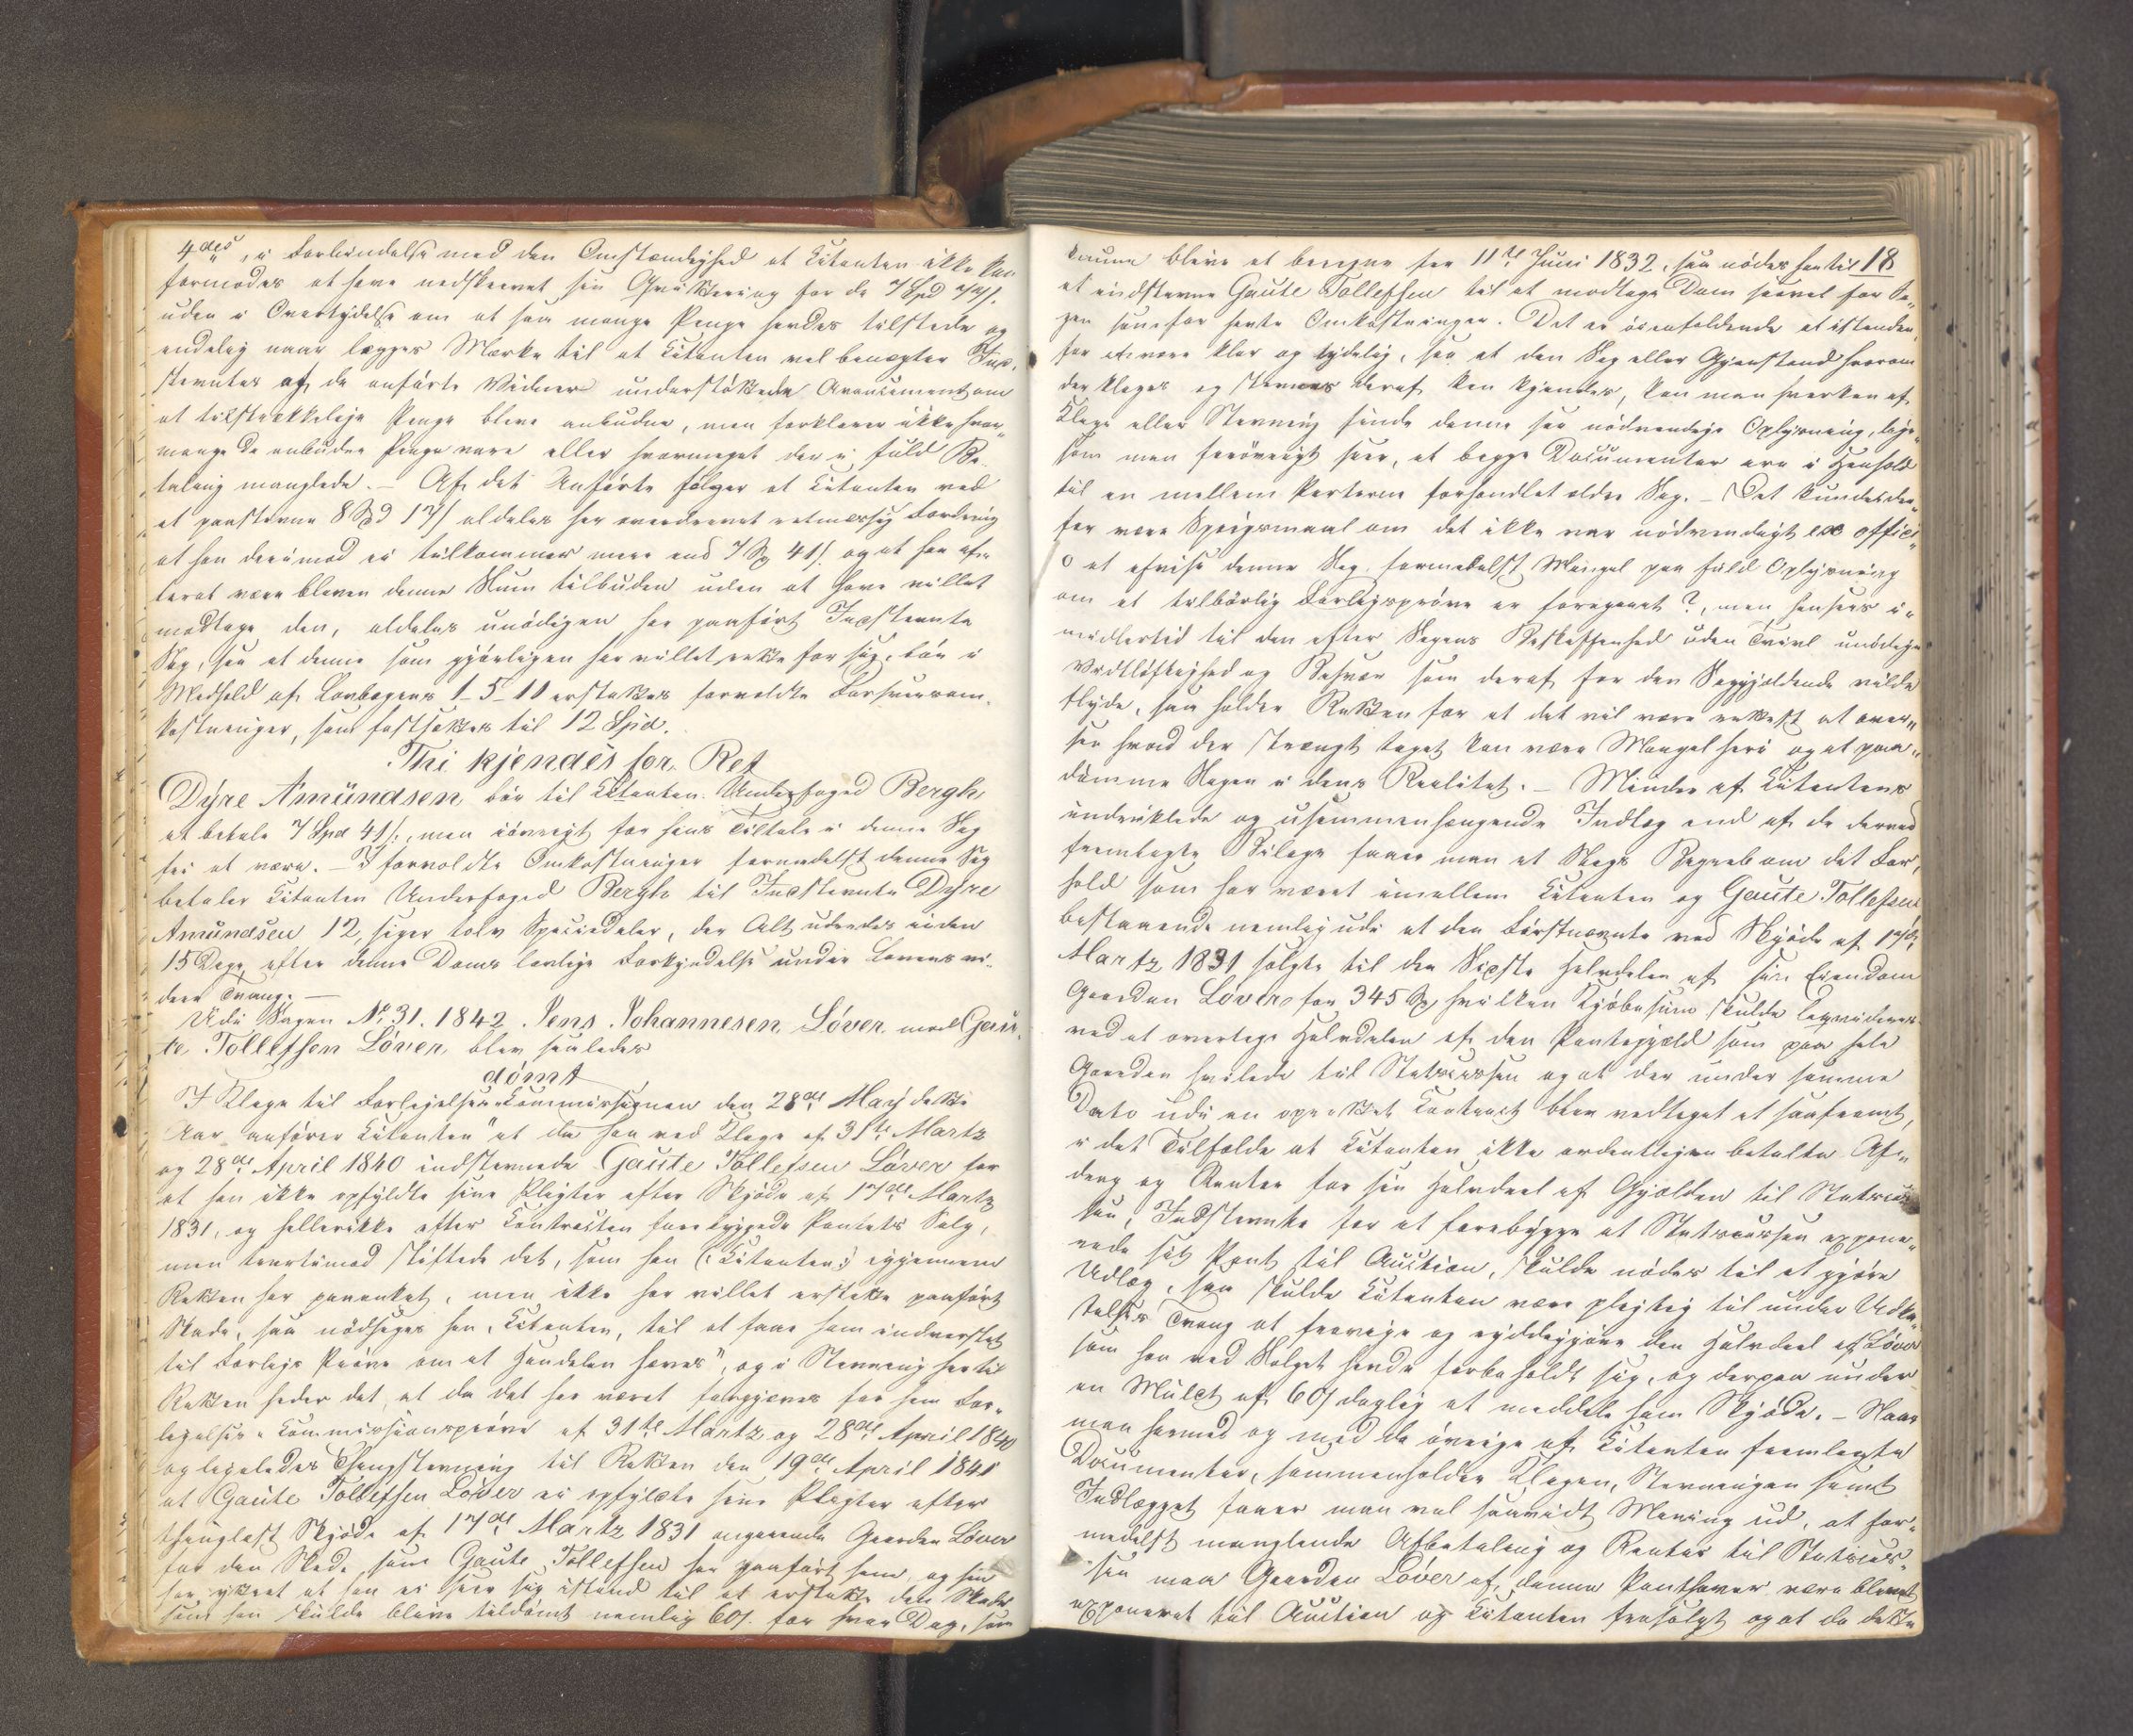 4des, i Forbindelse med den Omstændighed at Citanten ikke kan
formodes at have nedskrevet sin Qvittering for de 7 Spd
uden i Overtydelse om at saa mange Penge havdes tilstede og
endelig naar lægges Mærke til at Citanten vel benægter Ind-
stevntes af de anførte Vidner understøttede Anbringende om
at tilstrækkelige Penge bleve anbudne, men forklarer ikke hvor
mange de anbudne Penge vare eller hvormeget der i fuld Be-
taling manglede. – Af det Anførte følger at Citanten ved
at paastevne 8 Spd aldeles har overdrevet retmæssig Fordring
at han derimod ei tilkommer mere end 7 Sp 41 s. og at han ef-
terat være bleven denne Sum tilbuden uden at have villet
modtage den, aldeles unødigen har paaført Indstevnte
Sag, saa at denne som gjørligen har villet rette for sig, bør i
Medhold af Lovbogens 1–5–11 erstattes forvoldte Forsvarsom-
kostninger, som fastsættes til 12 Spd.
Thi kjendes for Ret
Dyre Amundsen bør til Citanten Underfoged Bergh
at betale 7 Spd 41 s., men iøvrigt for hans Tiltale i denne Sag
fri at være. – I forvoldte Omkostninger formedelst denne Sag
betaler Citanten Underfoged Bergh til Indstevnte Dyre
Amundsen 12, siger tolv Speciedaler, der Alt udredes inden
15 Dage efter denne Doms lovlige Forkyndelse under Lovens vi-
dere Tvang. –
Udi Sagen No 31. 1842 Jens Johannesen Löver mod Gau-
te Tollefsen Löver, blev saaledes
dömt
I Klage til Forligelses Commissionen den 28de Maij dette
Aar anfører Citanten "at da han ved Klage af 31te Martz
og 28de April 1840 indstevnede Gaute Tollefsen Löver for
at han ikke opfyldte sine Pligter efter Skjøde af 17de Martz
1831, og hellerikke efter Contracten forebyggede Pantets Salg,
men tvertimod skiftede det, som han (: Citanten :) igjennem
Retten har paaanket, men ikke har villet erstatte paaført
Skade, saa nødsages han, Citanten, til at faae ham indvarslet
til Forligs Prøve om at Handelen hæves", og i Stevning hertil
Retten heder det, at da det har været forgjæves for ham For-
legelses Commissionsprøve af 31te Martz og 28de April 1840
og ligeledes Thingstevning til Retten den 19de April 1841
at Gaute Tollefsen Löver ei opfyldte sine Pligter efter
thinglæst Skjøde af 17de Martz 1831 angaaende Gaarden Löver
for den Skade som Gaute Tollefsen har paaført ham, og han
har yttret at han ei seer sig istand til at erstatte den Skade
som han skulde blive tildømt nemlig 60 s. for hver Dag, som
kunne blive at beregne fra 11te Juni 1832, saa nødes han til 18
at indstevne Gaute Tollefsen til at modtage Dom saavel for Sa-
gen som for hafte Omkostninger. Det er iøienfaldende at istenden
for at være klar og tydelig, saa at den Sag eller Gjenstand hvorom
der klages og stevnes deraf kan kjendes, kan man hverken af
Klage eller Stevning finde denne saa nødvendige Oplysning, lige-
som man forøvrigt seer, at begge Documenter ere i Henhold
til en mellem Parterne forhandlet ældre Sag. – Det kunde der-
for være Spørgsmaal om det ikke var nødvendigt ex offici-
o at afvise denne Sag formedelst Mangel paa fuld Oplysning
om at tilbørlig Forligsprøve er foregaaet?, men hensees i-
midlertid til den efter Sagens Beskaffenhed uden Tvivl unødige
Vidtløftighed og Besvær som deraf for den Sagsjældende vilde
flyde, saa holder Retten for at det vil være rettest at over-
see hvad der strængt taget kan være Mangel heri og at paa-
dømme Sagen i dens Realitet. – Mindre af Citantens
indviklede og usammenhængende Indlæg end af de derved
fremlagte Bilage faaer man et Slags Begreb om det For-
hold som har været imellem Citanten og Gaute Tollefsen
bestaaende nemlig udi at den Førstnævnte ved Skjøde af 17de
Martz 1831 solgte til den Sidste Halvdelen af sin Eiendom
Gaarden Löver for 345 Sp, hvilken Kjøbesum skulde liqvideres
ved at overtage Halvdelen af den Pantegjæld som paa hele
Gaarden hvilede til Statscassen og at der under samme
Dato udi en oprettet Contract blev vedtaget at saafremt,
i det Tilfælde at Citanten ikke ordentligen betalte Af-
drag og Renter for sin Halvdeel af Gjælden til Statscas-
sen, Indstevnte for at forebygge at Statscassen expone-
rede sit Pant til Auction, skulde nødes til at gjøre
Udlæg, saa skulde Citanten være pligtig til under Udka-
stelses Tvang at fravige og ryddiggjøre den Halvdeel af Löver
som han ved Salget havde forbeholdt sig, og derpaa under
en Mulct af 60 s daglig at meddele ham Skjøde. – Naar
man hermed og med de øvrige af Citanten fremlagte
Documenter, sammenholder Klagen, Stevningen samt
Indlægget faaer man vel saavidt Mening ud, at for-
medelst manglende Afbetaling og Renter til Statscas-
sen maa Gaarden Löver af denne Panthaver være blevet
exponeret til Auction og Citanten frasolgt og at da dette